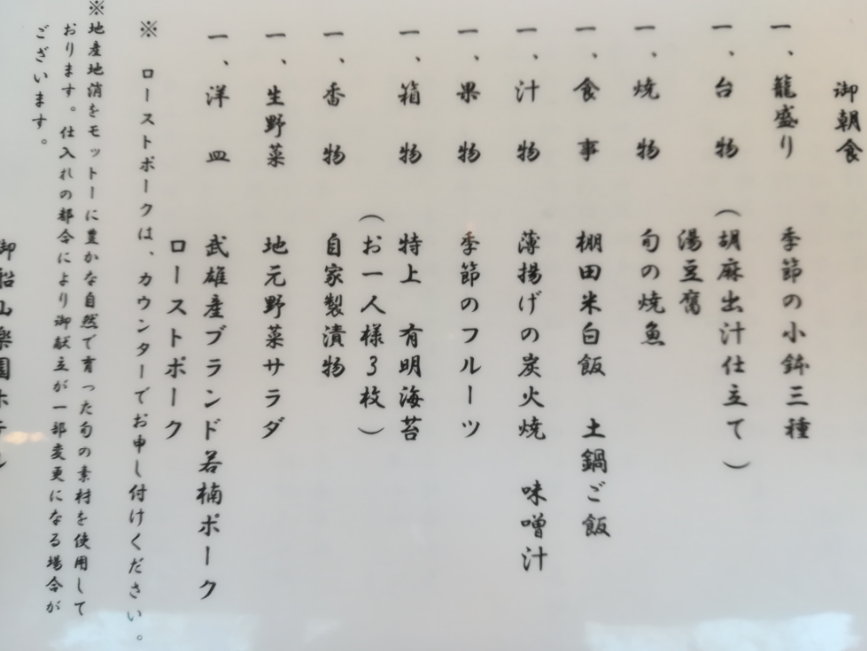 御朝食
一、籠盛り　季節の小鉢三種
一、台　物（胡麻出汁仕立て）
湯豆腐
一、焼　物　旬の焼魚
一、食　事　棚田米白飯　土鍋ご飯
一、汁　物　薄揚げの炭火焼　味噌汁
一、果　物　季節のフルーツ
一、箱　物　特上　有明海苔
（お一人様３枚）
一、香　物　自家製漬物
一、生野菜　地元野菜サラダ
一、洋　皿　武雄産ブランド若楠ポーク
ローストポーク
※　ローストポークは、カウンターでお申し付けください。
※地産地消をモットーに豊かな自然で育った旬の素材を使用して
おります。仕入れの都合により御献立が一部変更になる場合が
ございます。
御船山楽園ホテル